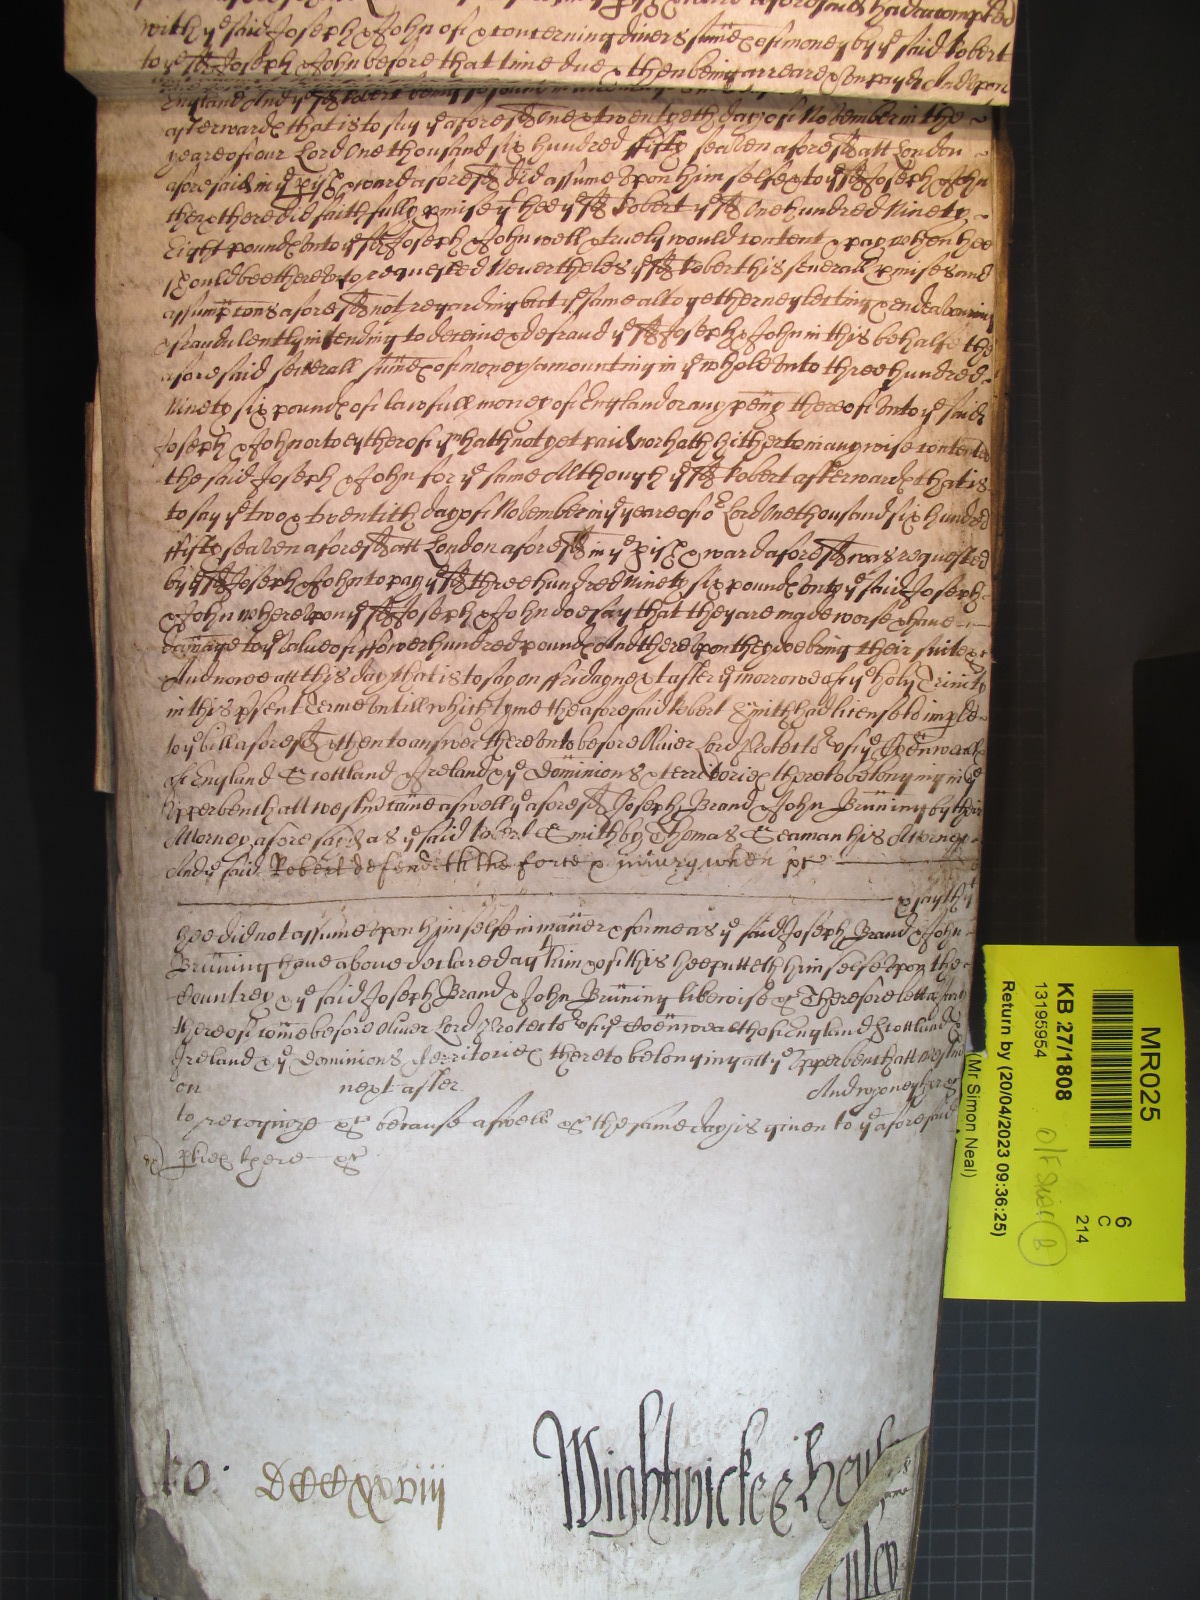 with ye said Joseph & John of & concerning divers summes of money by ye said Robert
to ye sd Joseph & John before that time due & then being arreare & unpayed And upon
England And ye sd Robert being so found in
afterwards that is to say ye aforesd one & twentyeth day of November in the
yeare of our Lord One thousand six hundred fifty seaven aforesd att London
aforesaid in ye pish & ward aforesd did assume upon him selfe & to ye sd Joseph & John
then & there did faithfully pmise yt hee ye sd Robert ye sd One hundred Ninety
Eight pounds unto ye sd Joseph & John well & truely would content & pay when hee
should bee thereunto requested Neverthelesse ye sd Robert his severall pmises and
assumptons aforesd not regarding but ye same altogether neglecting & endeavouring
& fraudulently intending to deceive & defraud ye sd Joseph & John in this behalfe the
aforesaid severall summes of money amounting in ye whole unto three hundred
Ninety six pounds of lawfull money of England or any peny thereof unto ye said
Joseph & John or to eyther of ym hath not yet paid nor hath hitherto in any wise contented
the said Joseph & John for ye same Although ye sd Robert afterwards that is
to say ye two & twentith day of November in ye yeare of or Lord One thousand six hundred
fifty seaven aforesd att London aforesd in ye pish & ward aforesd was requested
by ye sd Joseph & John to pay ye sd three hundred Ninety six pounds unto ye said Joseph
& John whereupon ye sd Joseph & John doe say that they are made worse & have
damage to ye value of fower hundred pounds And thereupon they doe bring their suite &c
And nowe att this day that is to say on ffriday next after ye morrowe of ye holy Trinity
in this psent Terme untill which tyme the aforesaid Robert Smith had license to imple
to ye bill aforesd & then to answer thereunto before Oliver Lord Protector of ye Comonwealth
of England Scottland & Ireland & ye Dominions & territories thereto belonging in ye
upperbench att Westmr came aswell ye aforesd Joseph Brand & John Bruning by their
Attorney aforesaid as ye said Robert Smith by Thomas Seaman his Attorney
And ye said Robert defendeth the force & iniury when &c
& say tht
hee did not assume upon himselfe in maner & forme as ye said Joseph Brand & John
Bruning have above declared agt him & of this hee putteth himselfe upon the
Countrey & ye said Joseph Brand & John Bruning likewise &c Therefore lett a Jury
thereof come before Oliver Lord Protector of ye Comonwealth of England Scottland &
Ireland & ye Dominions & Territories thereto belonging att ye upperbench att Westmr
on next after And who neyther &c
to recognize &c because aswell &c the same day is given to ye aforesaid
pties there &c
Ro: DCCCxxviij
Wightwicke &
MR025
6
C
214
KB 27/1808
13195954
O/F Skin (2)
Return by (20/04/2023 09:36:25)
(Mr Simon Neal)